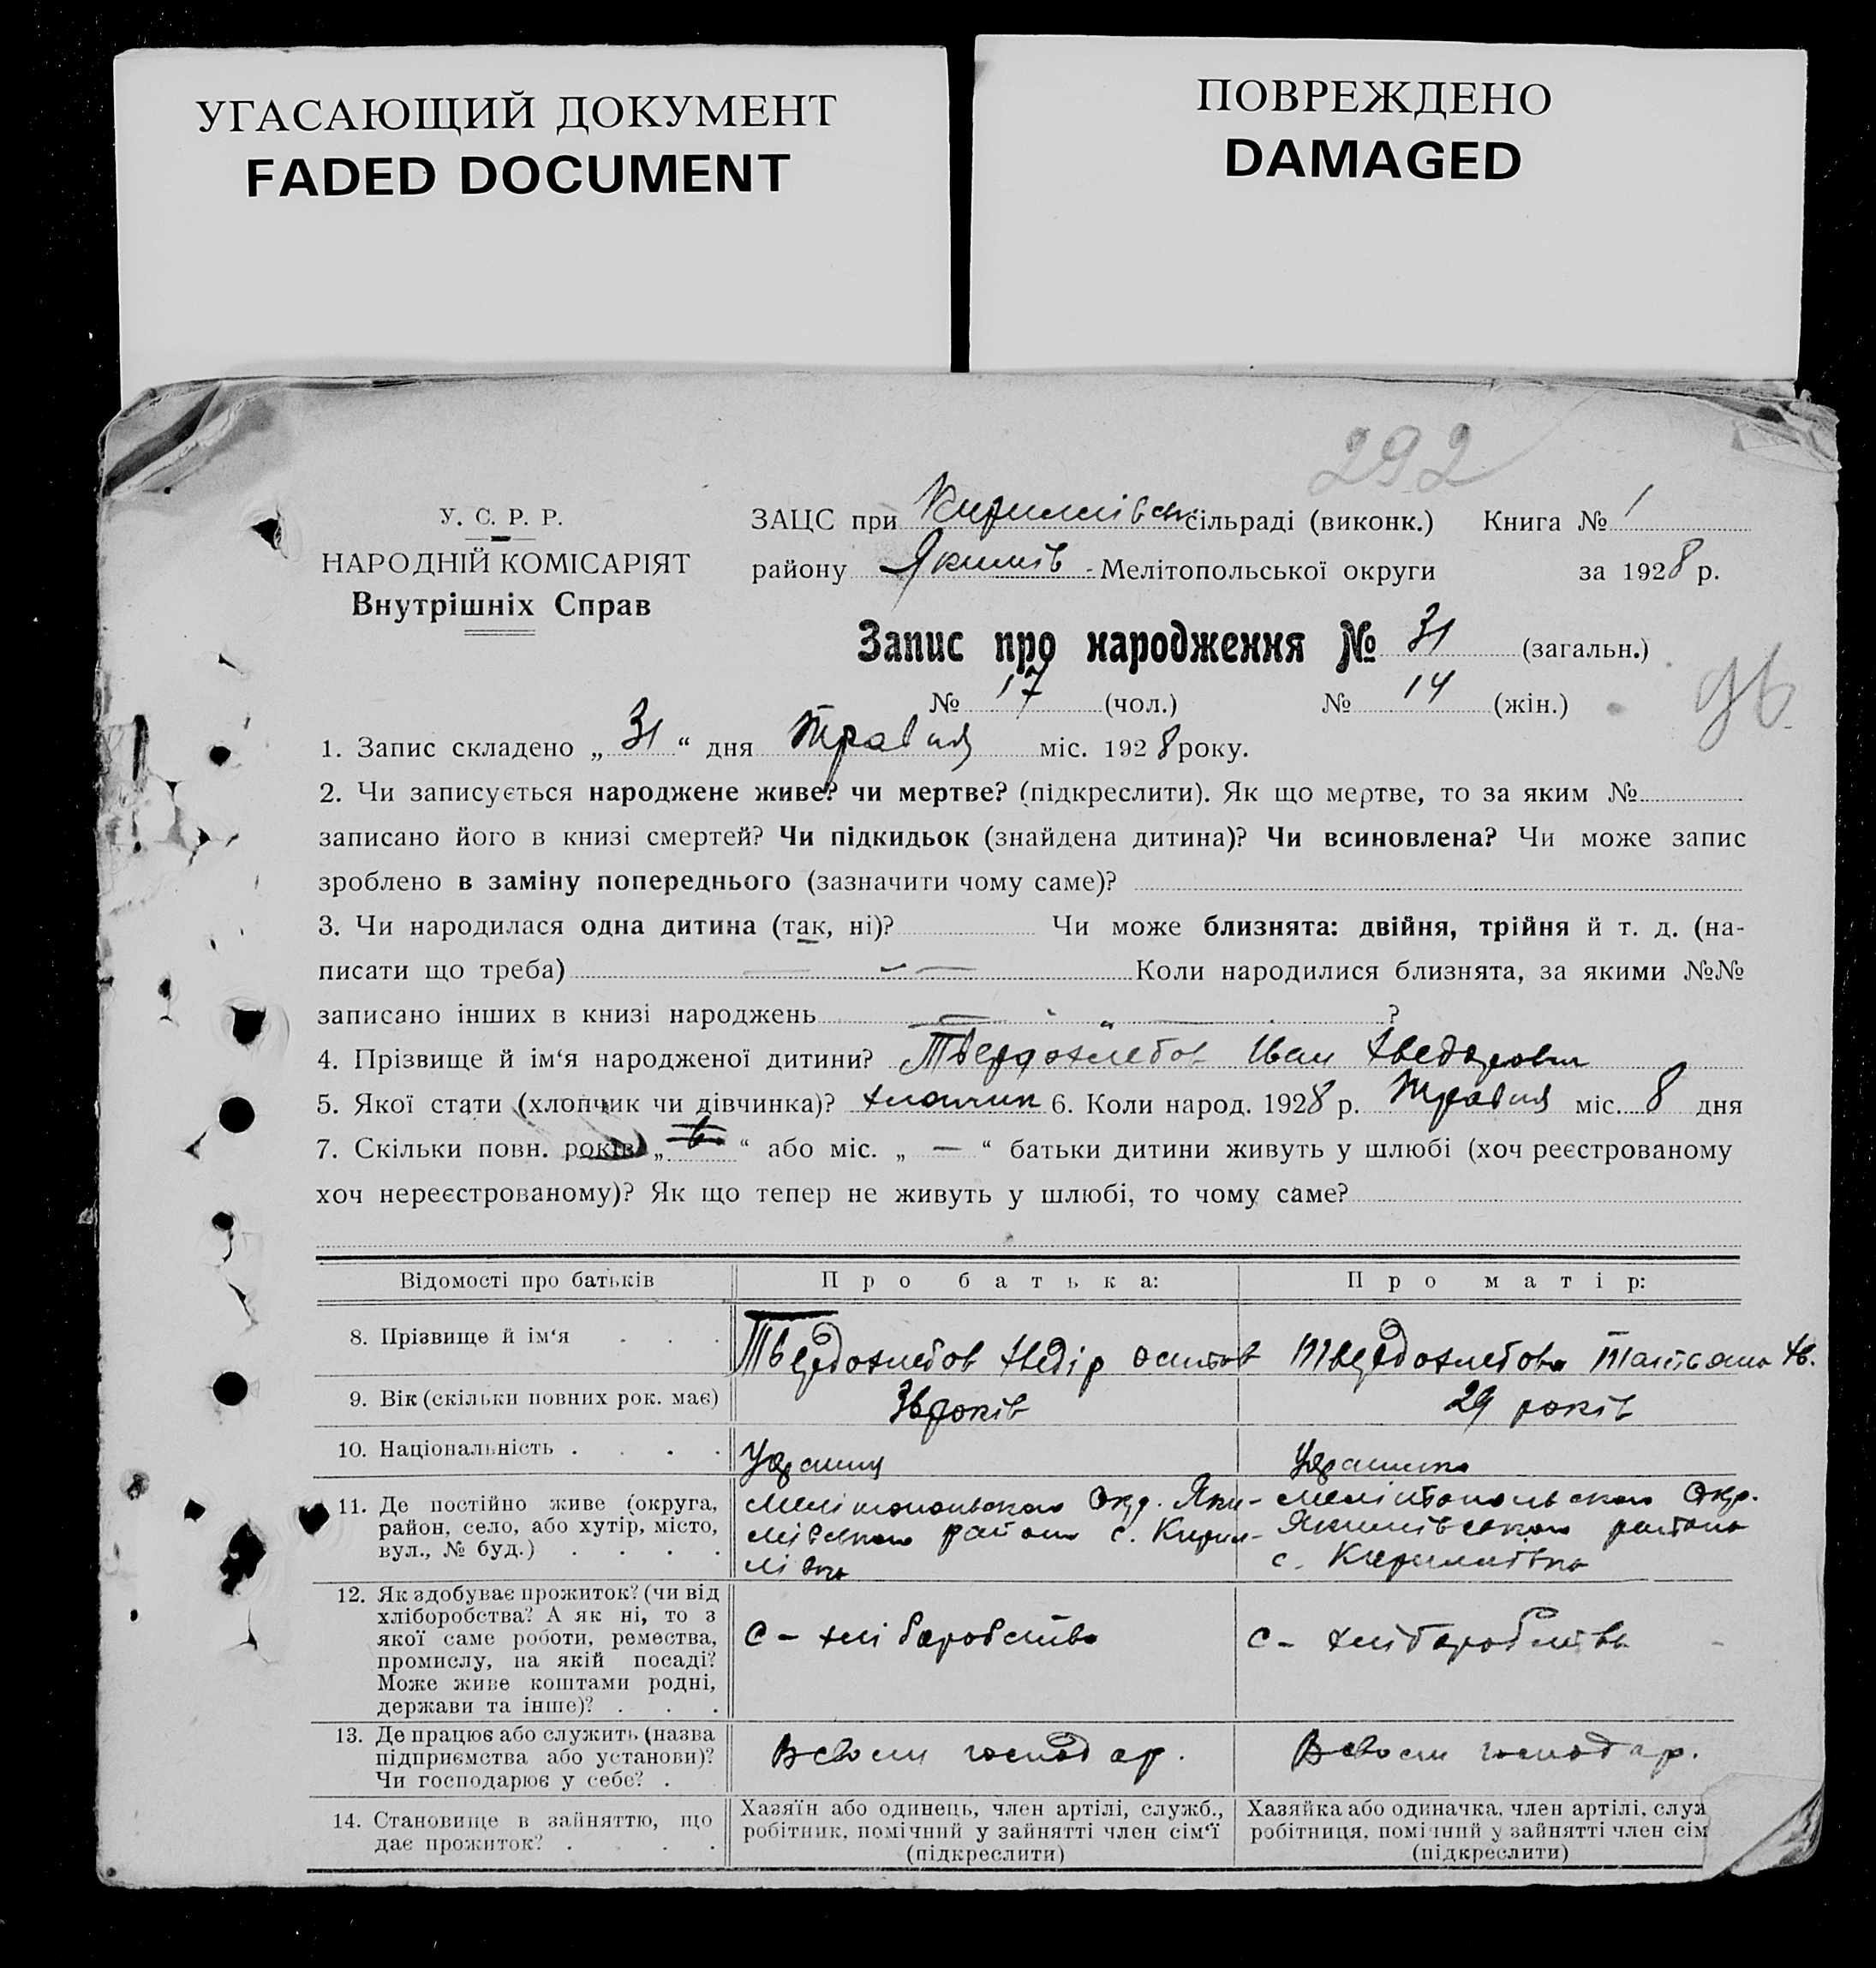 УГАСАЮЩИЙ ДОКУМЕНТ
FADED DOCUMENT
ПОВРЕЖДЕНО
DAMAGED
292
У. С. Р. Р.
НАРОДНІЙ КОМІСАРІЯТ
Внутрішніх Справ
ЗАЦС при Кирилівськ сільраді (виконк.) Книга № 1
району Якимів - Мелітопольської округи за 1928 р.
Запис про народження № 31 (загальн.)
№ 17 (чол.) № 14 (жін.)
1. Запис складено „ 31 “ дня Травня міс. 1928 року.
2. Чи записується народжене живе? чи мертве? (підкреслити). Як що мертве, то за яким №
записано його в книзі смертей? Чи підкидьок (знайдена дитина)? Чи всиновлена? Чи може запис
зроблено в заміну попереднього (зазначити чому саме)?
3. Чи народилася одна дитина (так, ні)? Чи може близнята: двійня, трійня й т. д. (на-
писати що треба) Коли народилися близнята, за якими №№
записано інших в книзі народжень ?
4. Прізвище й ім‘я народженої дитини? Твердохлебов Іван Хведорович
5. Якої стати (хлопчик чи дівчинка)? хлопчик 6. Коли народ. 1928 р. Травня міс. 8 дня
7. Скільки повн. років „ “ або міс. „ — “ батьки дитини живуть у шлюбі (хоч реєстрованому
хоч нереєстрованому)? Як що тепер не живуть у шлюбі, то чому саме?
Відомості про батьків
Про батька:
Про матір:
8. Прізвище й ім‘я . . .
Твердохлебов Хведір
Твердохлебова Татьяна Хв.
9. Вік (скільки повних рок. має)
років
29 років
10. Національність . . . .
Украинц
Украинка
11. Де постійно живе (округа,
район, село, або хутір, місто,
вул., № буд.) . . . .
Мелітопольскои Окр. Яки-
мівського району с. Кирил-
лівка
Мелітопольскои Окр.
Якимівського району
с. Кириллівка
12. Як здобуває прожиток? (чи від
хліборобства? А як ні, то з
якої саме роботи, ремества,
промислу, на якій посаді?
Може живе коштами родні,
держави та інше)? . . .
С - хліборобство
С - хліборобство
13. Де працює або служить (назва
підприємства або установи)?
Чи господарює у себе? .
В своем господар.
В своем господар.
14. Становище в зайняттю, що
дає прожиток? . . . .
Хазяїн або одинець, член артілі, служб.,
робітник, помічний у зайнятті член сім‘ї
(підкреслити)
Хазяйка або одиначка, член артілі, служ
робітниця, помічний у зайнятті член сім
(підкреслити)